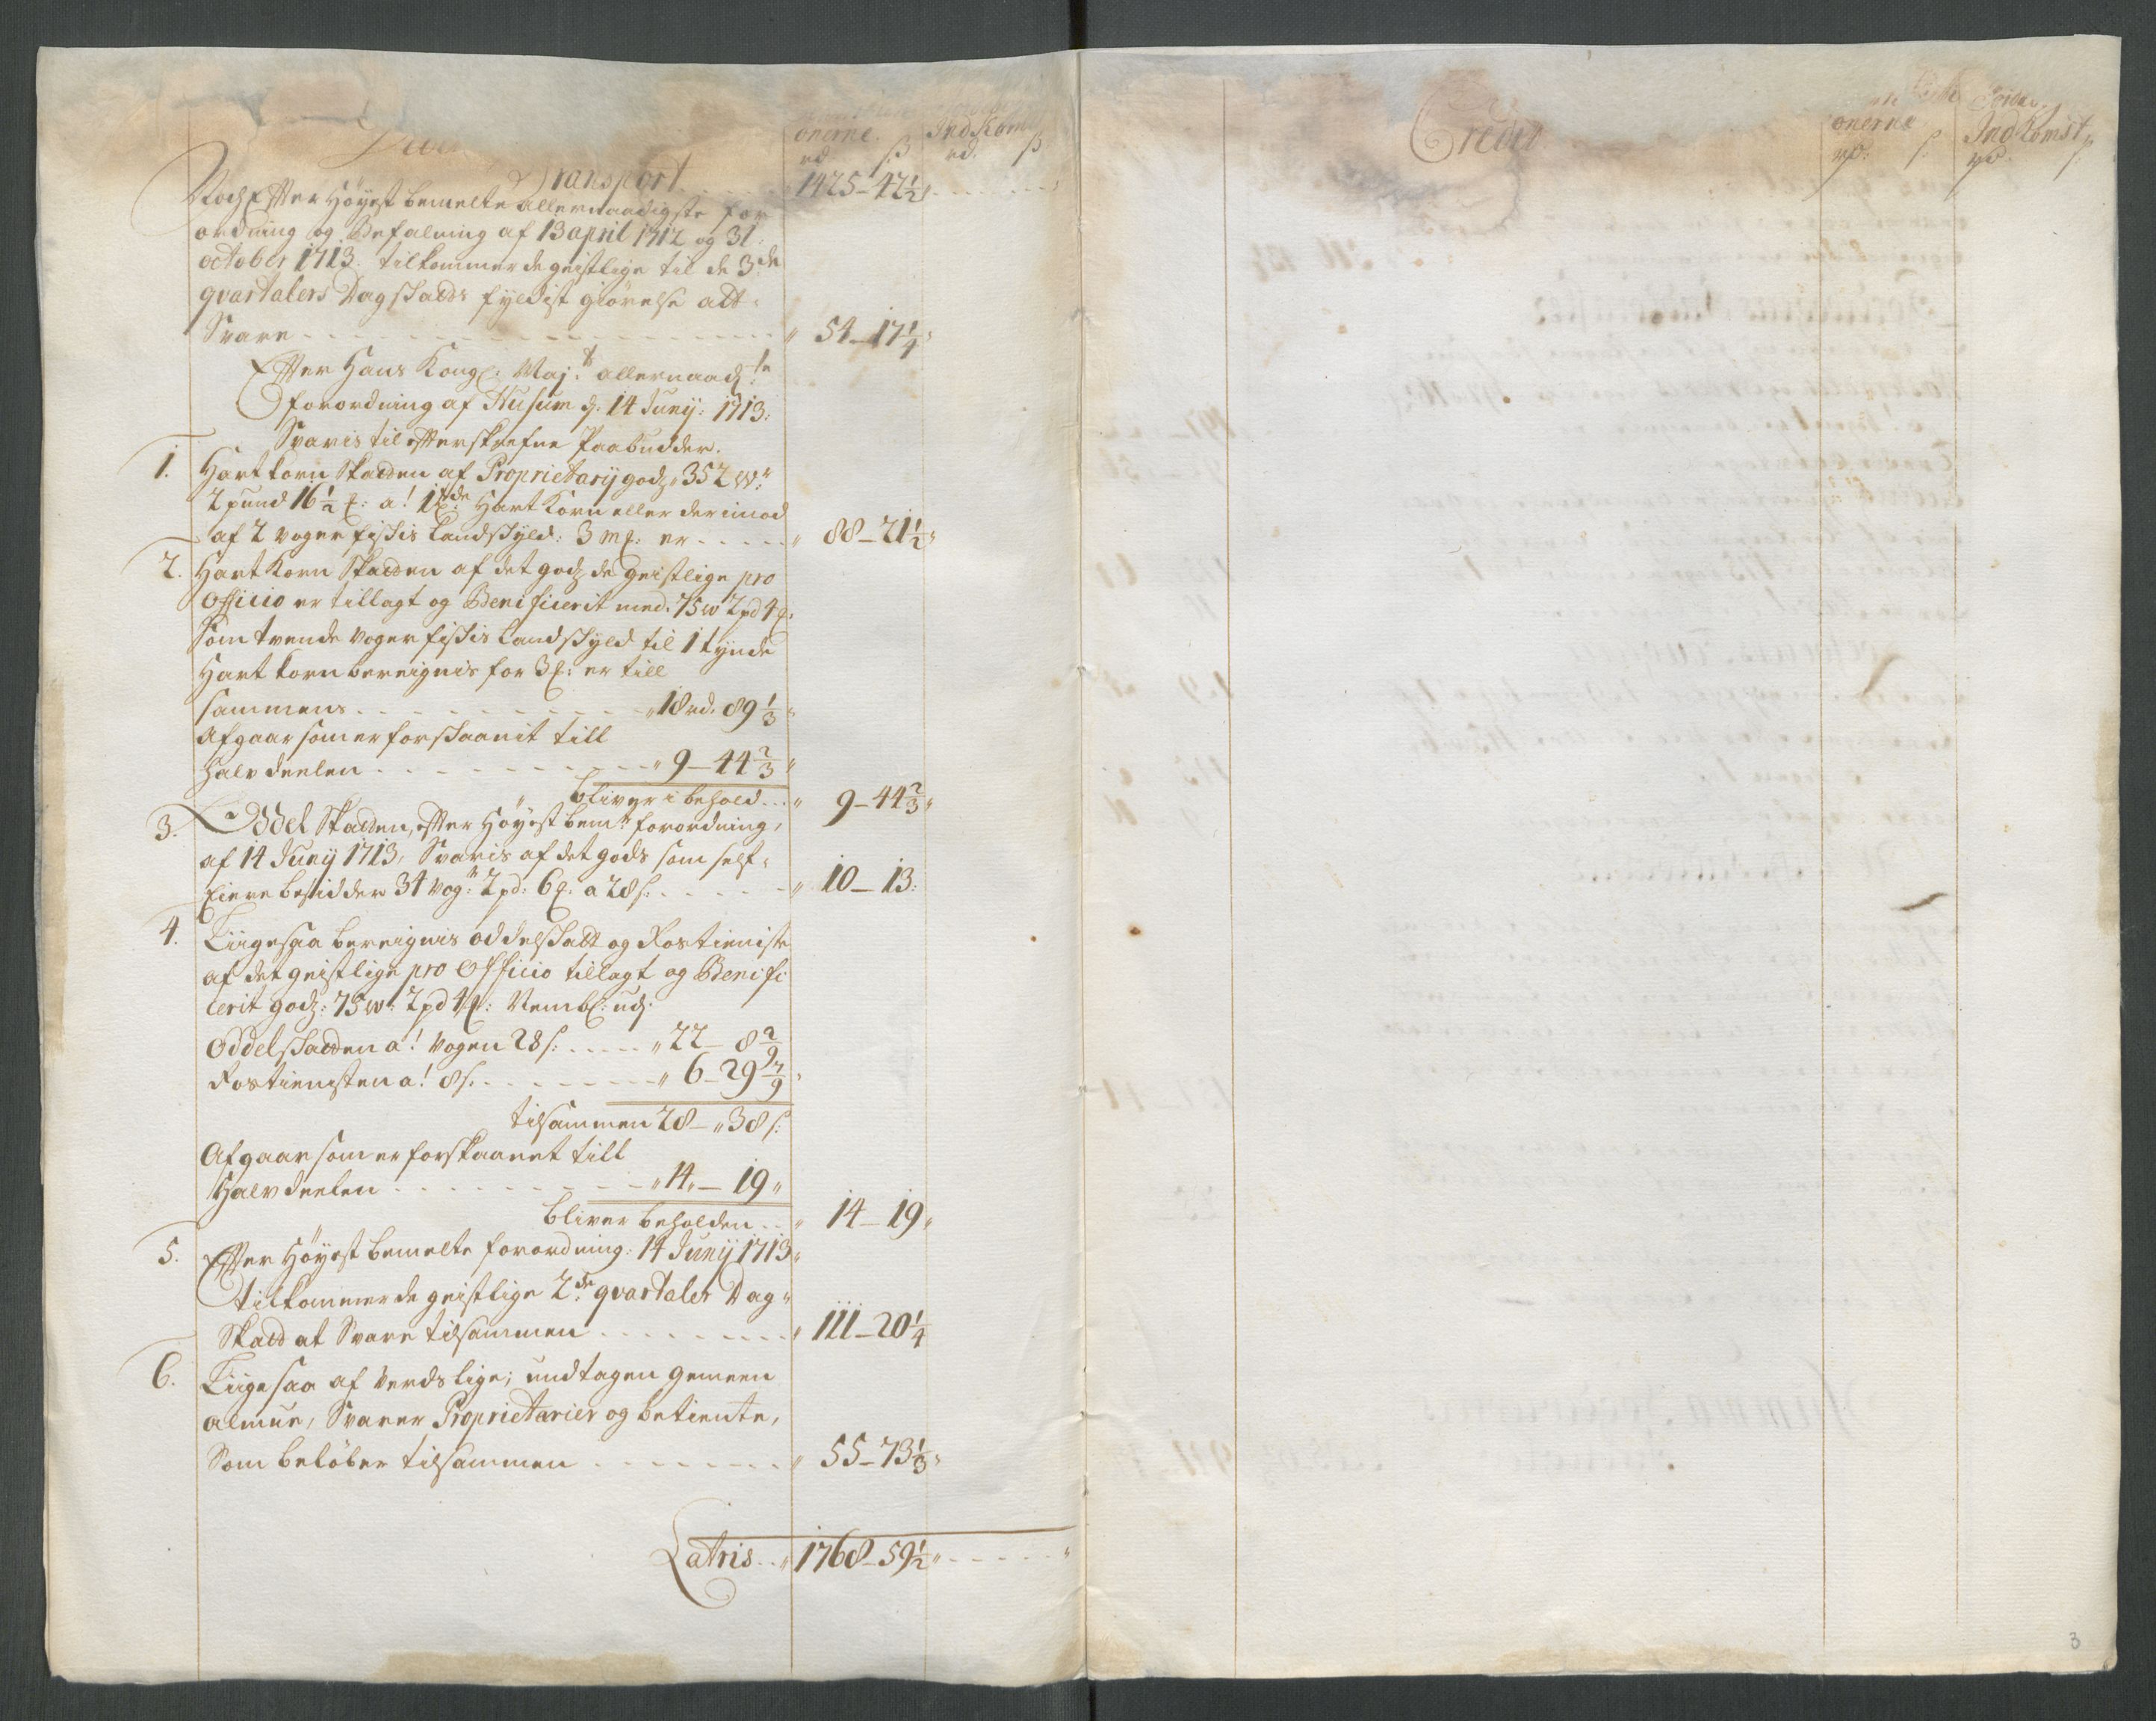 onerne. IndKomst
rd ß rd. ß
Transport . . . . . 1425 - 42½
Noch Effter Höyest bemelte allernaadigste for
ordning og Befalning af 13 april 1712 og 31.
october 1713. tilkommer de geistlige til de 3de
qvartalers Dagskatts fyldist giörelse att
Svare - - - - - - 54 - 17¼
Effter Hans Kongl: Maj:t allernaadste
forordning af Husum d. 14 Junij: 1713:
Svaris til effterskrefne Paabudder.
1. Hartkorn Skatten af Proprietarij godz, 352 W:
2 pund 16½ : a! 1 tde Hart Korn eller derimod
af 2 voger fiskis Landskyld: 3 : er - - - - - 88 - 21½
2. Hart Korn Skatten af det godz de geistlige pro
Officio er tillagt og Benificerit med: 75 w 2 pd 4
som tvende voger fiskis Landskyld til 1 tynde
Hart korn bereignis for 3 : er till
sammens - - - - - 18 rd. 89⅓
Afgaar som er forskaanit till
halvdeelen - - - - - 9 - 44⅔
bliver i behold - - 9 - 44⅔
3. Oddel Skatten, effter Höyest bemte forordning,
af 14 Junij 1713, Svaris af det gods som self-
Eiere besidder 34 Vog: 2 pd: 6 . a 28 ß: - - - - 10 - 13:
4. Liigesaa bereignis oddelskatt og Rostieniste
af det geistlige pro Officio tillagt og Benifi
cerit godz: 75 w: 2 pd 4 : Nembl: udj
Oddelskatten a! Vogen 28 ß: - - - - 22 - 8 2/9
Rostienisten a! 8 ß. - - - - - 6 - 29 7/9
tilsammen 28 - 38 ß:
Afgaar som er forskaanet till
Halvdeelen - - - - - 14 - 19
bliver beholden - - 14 - 19
5. Effter Höyest bemelte forordning: 14 Junij 1713
tilkommer de geistlige 2de qvartaler Dag
Skatt at Svare tilsammen - - - - - 111 - 20¼
6. Liigesaa af Verdslige; undtagen gemeen
almue, Svarer Proprietarier og betiente,
Som belöber tilsammen - - - - - 55 - 73⅓
Latris - - 1768 - 59½ - - - -
Credit
onerne IndKomst
rd: ß: rd: ß:
3